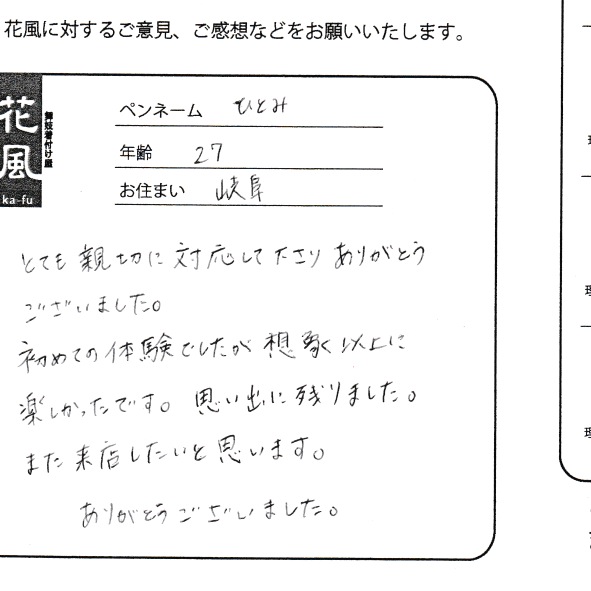 花風に対するご意見、ご感想などをお願いいたします。
花風
舞妓着付け屋
ka-fu
ペンネーム ひとみ
年齢 27
お住まい 岐阜
とても親切に対応して下さり ありがとう
ございました。
初めての体験でしたが 想像以上に
楽しかったです。思い出に残りました。
また来店したいと思います。
ありがとうございました。